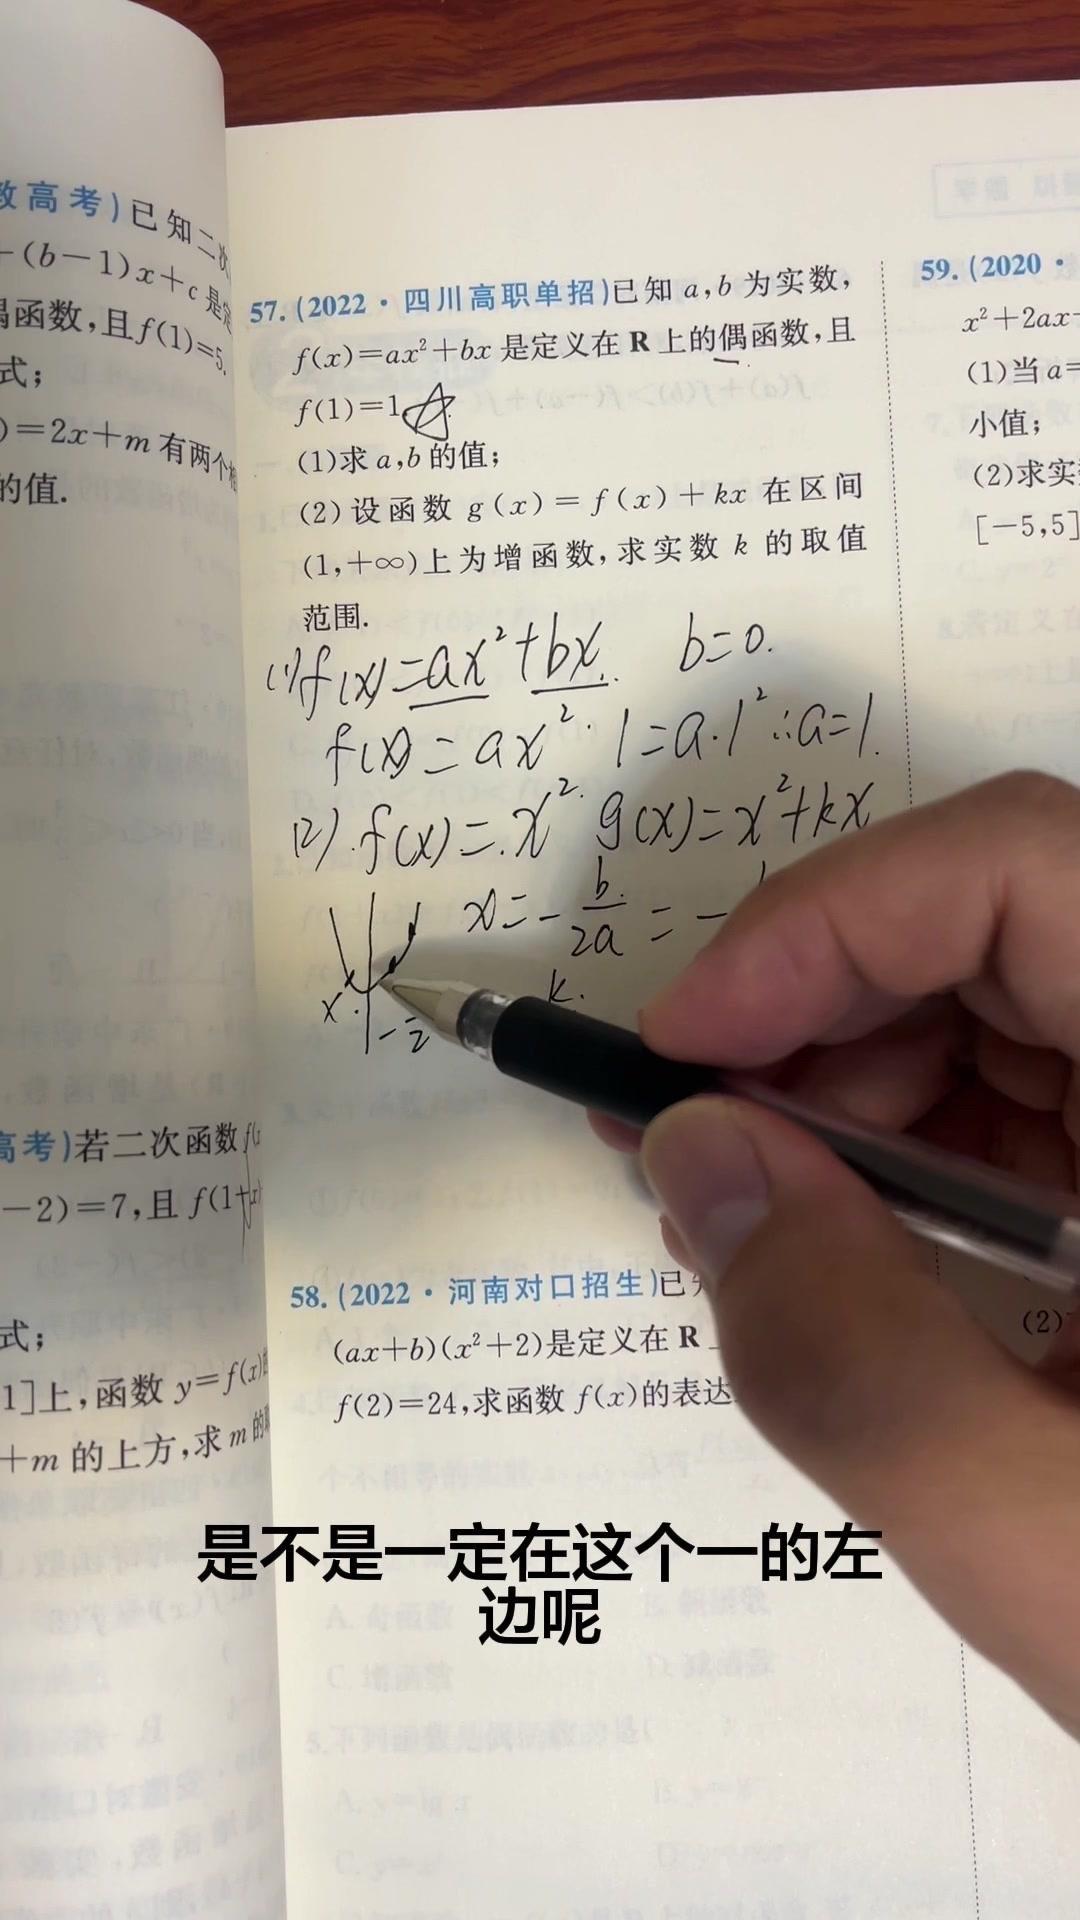 数高考)已知二次
+(b-1)x+c是定
偶函数,且f(1)=5.
式;
)=2x+m有两个相
的值.
高考)若二次函数f(x
-2)=7,且f(1+x)
式;
1]上,函数y=f(x)的
+m的上方,求m的取
57.(2022·四川高职单招)已知a,b为实数,
f(x)=ax²+bx是定义在R上的偶函数,且
f(1)=1
(1)求a,b的值;
(2)设函数g(x)=f(x)+kx在区间
(1,+∞)上为增函数,求实数k的取值
范围.
(1)f(x)=ax²+bx. b=0.
f(x)=ax². 1=a·1² ∴a=1.
(2).f(x)=x². g(x)=x²+kx
x=-b/2a=-
x.
-
2
k.
58.(2022·河南对口招生)已
(ax+b)(x²+2)是定义在R
f(2)=24,求函数f(x)的表达
59.(2020·
x²+2ax
(1)当a=
小值;
(2)求实
[-5,5]
(2)
是不是一定在这个一的左
边呢